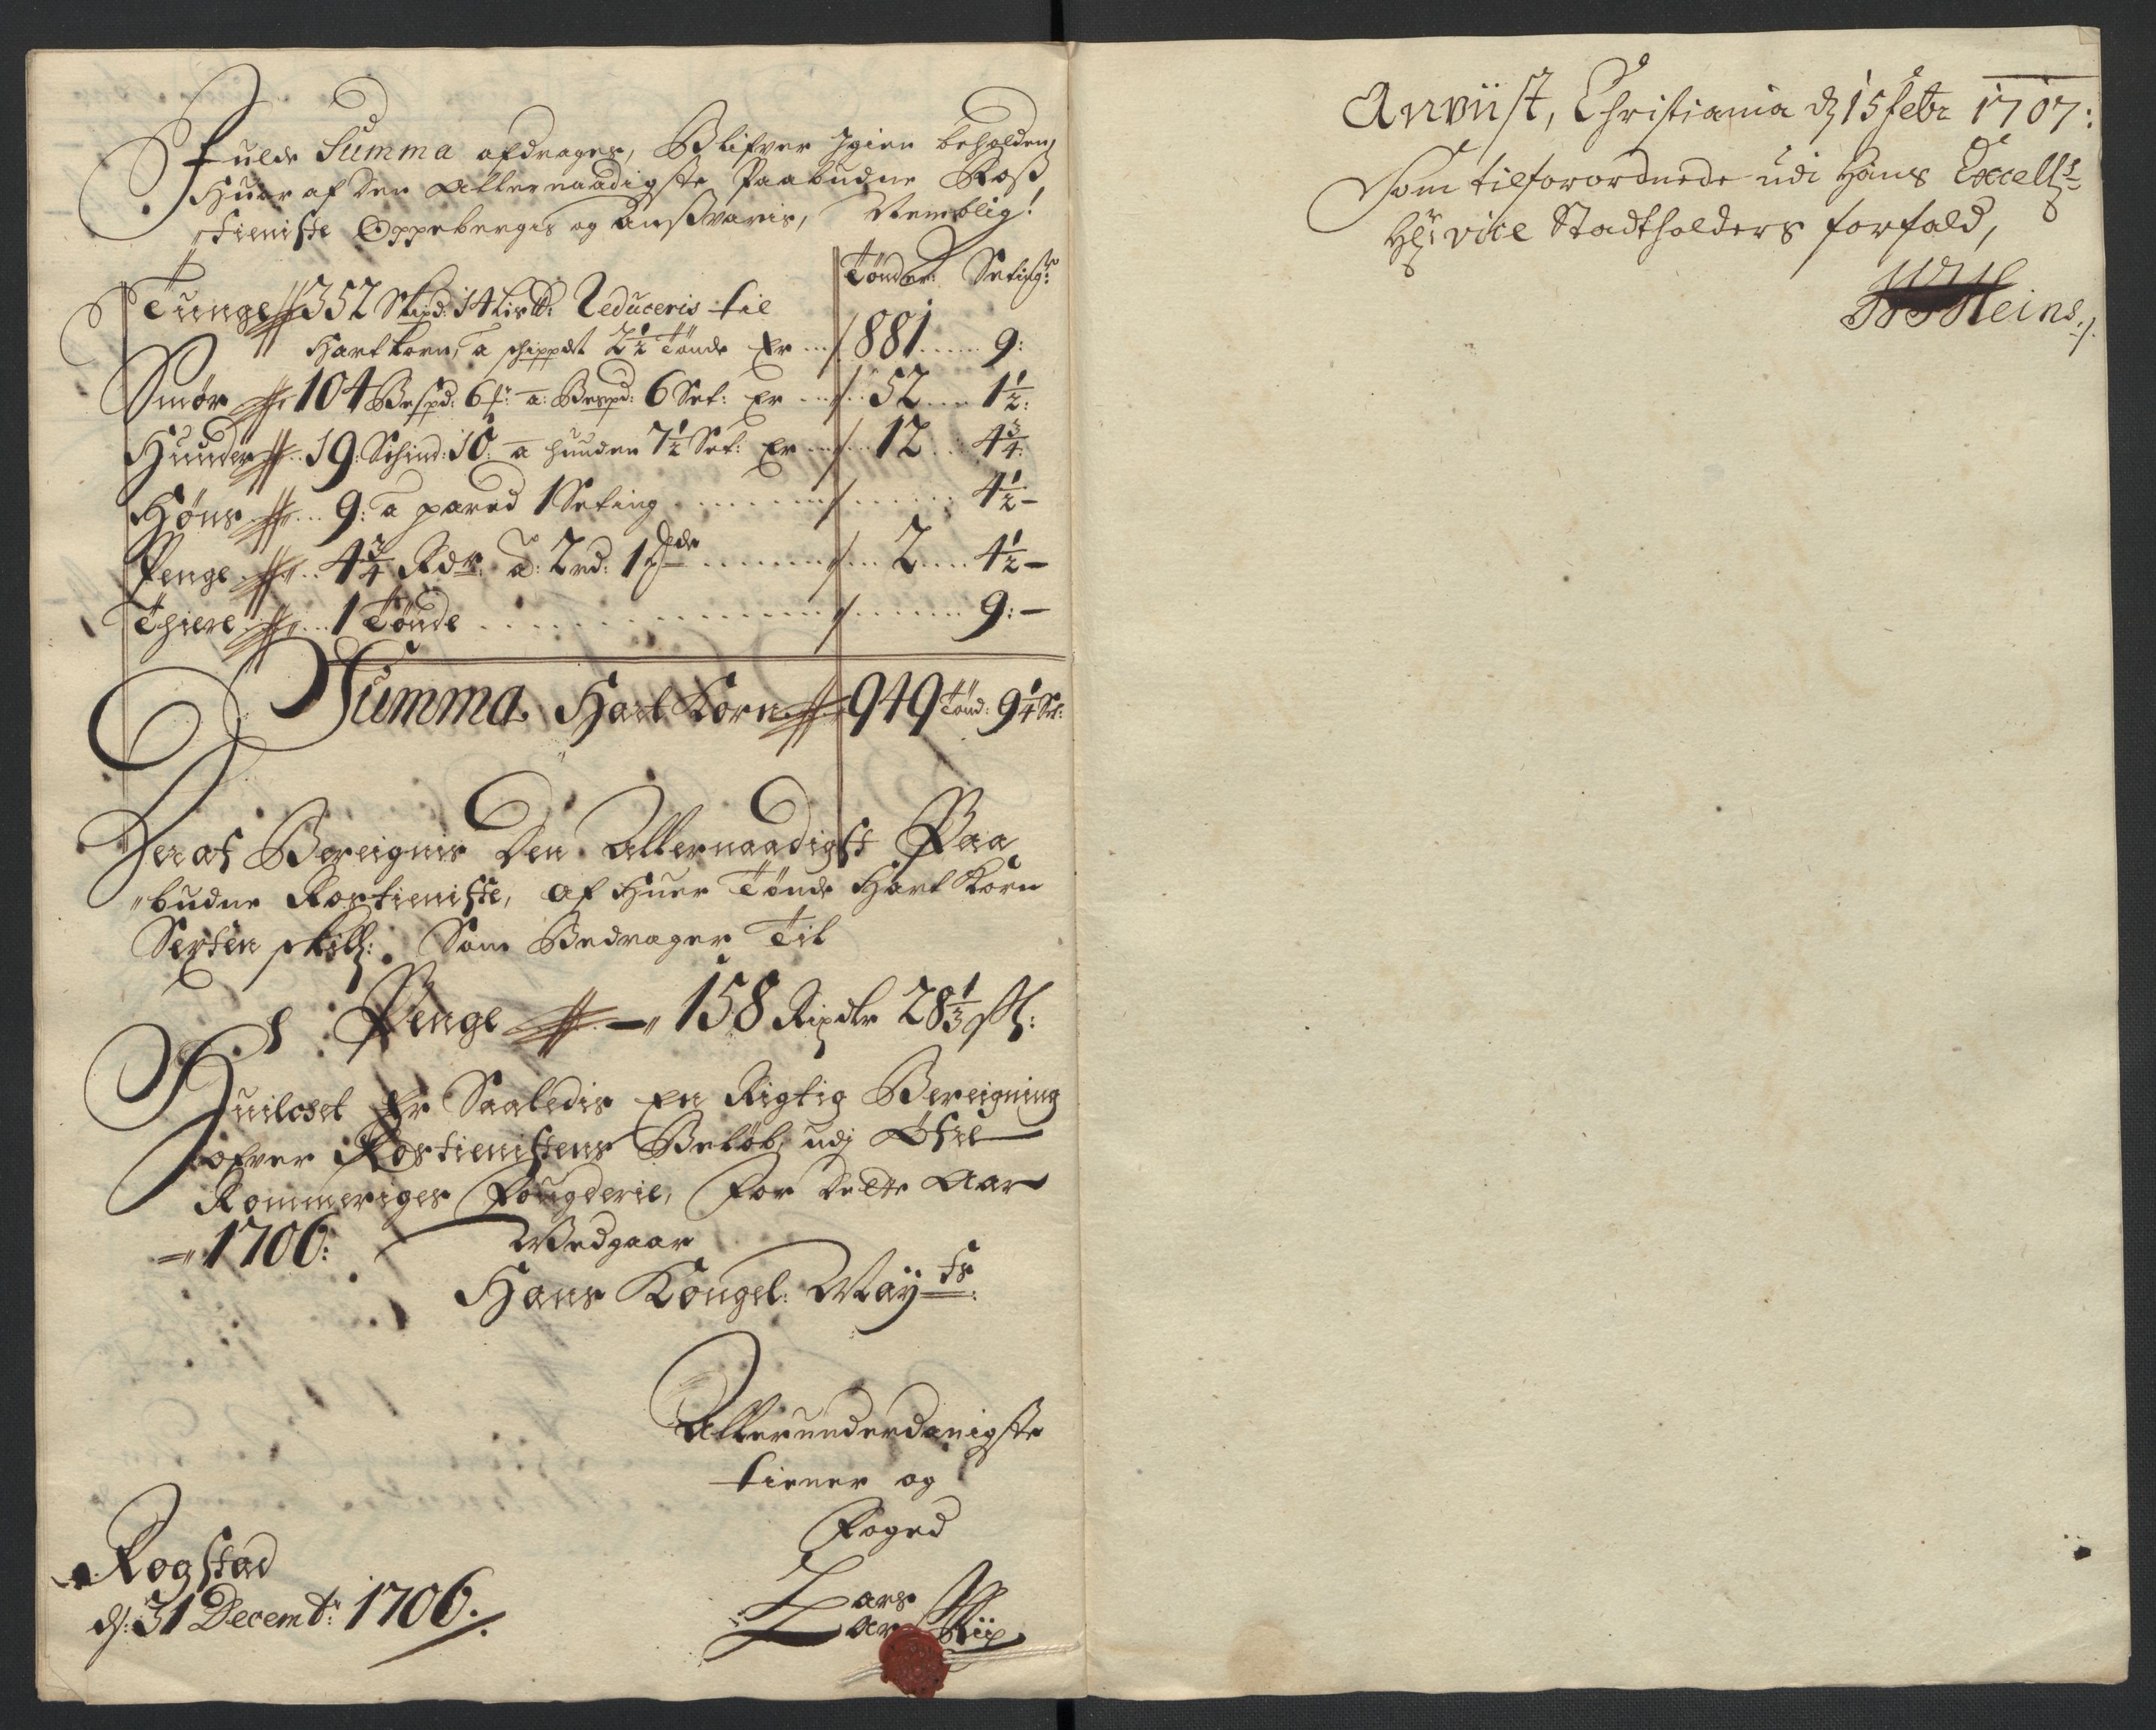 fulde Summa afdrages, Blifver Igien beholden,
Huor af den Allernaadigste Paabudne Roß
tieniste Oppebergis og Ansvaris, Nemblig!
Tønder: Seting:
Tunge 352 Skipd: 14 Lis℔: Reduceris til
Hartkorn, a schippdt 2½ Tønde Er 881 9:
Smør 104 Bespd: 6 a: Bespd: 6 Set: Er 52 1½:
Huuder 19: Schind: 10: a huuden 7½ Set: Er 12 4¾:
Høns 9: a pared 1 Seting 4½
Penge 4¾ Rdr: a: 2rd: 1 Tde 2 4½
Thiere 1 Tønde 9:
Summa Hart Korn 949 Tønd: 9¼ Set:
Heraf Bereignis den Allernaadigst Paa
budne Rostieniste, af Huer Tønde Hart Korn
Sexten skill: Som Bedrager Til
Penge 158 Rixdlr 28⅓ sk:
Huilchet Er Saaledis en Rigtig Bereigning
ofver Rostienistens Beløb, udj Øfre
Rommeriges Fougderie, For dette Aar
1706: Vedgaar
Hans Kongel: Mayts:
Allerunderdanigste
tiener og
Foged
Rogstad
d: 31 Decembr: 1706.
Lars
Ar
Anviist, Christiania d 15 Febr 1707:
Som tilforordnede udi Hans Excell:
Hr: vice Stadtholders forfald,